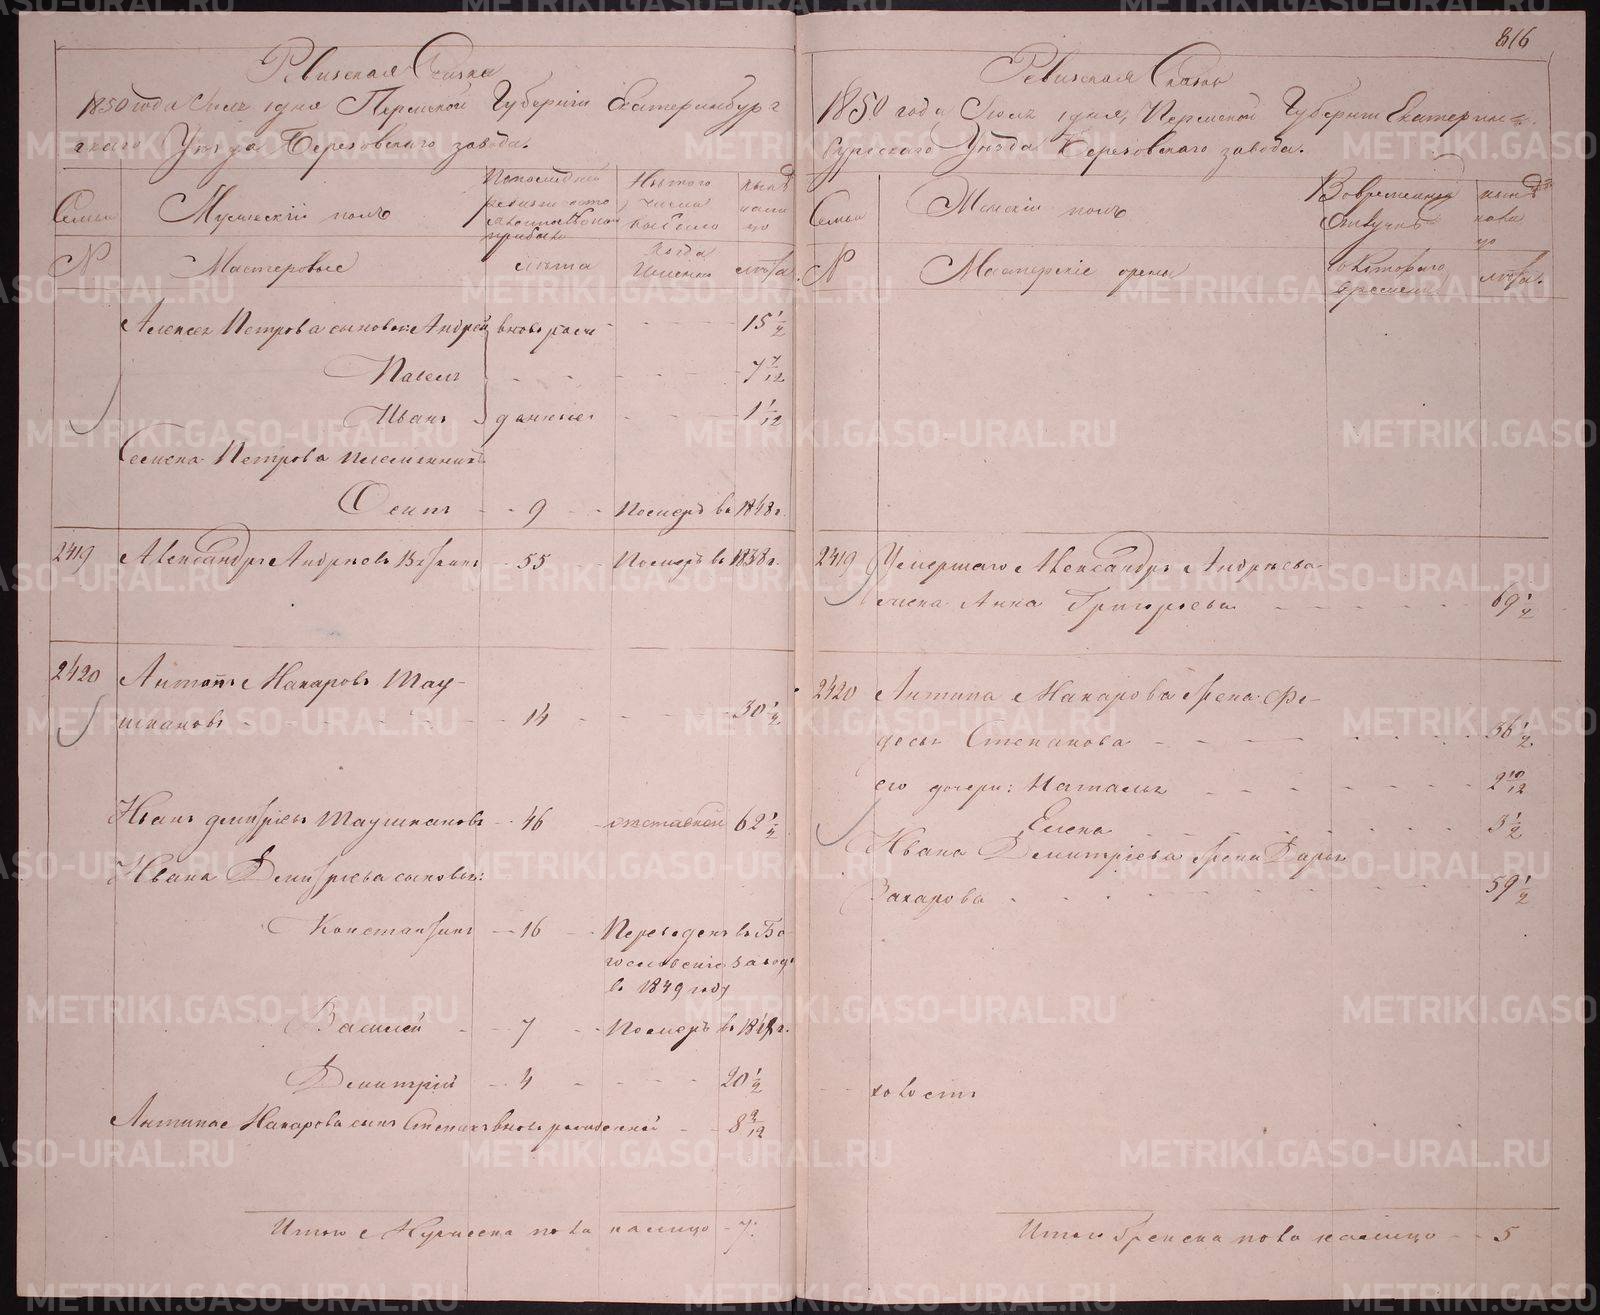 Ревизская Сказка
1850 года Июля 1 дня Пермской Губернiи Екатеринбург
скаго Уѣзда Березовскаго завода.
Семьи
Мужескiй полъ
По последней
ревизiи состо
яло и после
прибыло
Изъ того
числа
выбыло
нынѣ
нали
цо
№
Мастеровые
лѣта
Когда
Именно
лѣта.
Алексея Петрова сыновья: Андрей вновь рож 15 1/2
Павелъ 7 7/12
Иванъ денные 1 1/12
Семена Петрова племянникъ
Осипъ 9 Померъ въ 1848 г.
2419 Александръ Андреевъ 55 Померъ въ 1838 г.
2420 Антипъ Макаровъ Мау-
шкановъ 14 30 1/2
Иванъ Дмитрiевъ Маушкановъ 46 отставной 62 1/2
Ивана Дмитрiева сыновья:
Константинъ 16 Переведенъ въ Бо
гословскiе завод.
въ 1849 году
Василiй 7 Померъ въ г.
Дмитрiй 4 20 1/2
Антипа Макарова сынъ Степанъ вновь рожденной 8 9/12
Итого Мужеска пола налицо 7.
816
Ревизская Сказка
1850 года Июля 1 дня, Пермской Губернiи Екатерин-
бургскаго Уѣзда Березовскаго завода.
Семьи
Женскiй полъ
Во временной
отлучкѣ
нынѣ
нали
цо
№
Мастерскiе жены
съ Котораго
времени
лѣта.
2419 Умершаго Александра Андреева
жена Анна Григорьева 69 1/2
2420 Антипа Макарова жена Фе-
досья Степанова 36 1/2
его дочери: Наталья 2 10/12
Елена 3 1/2
Ивана Дмитрiева жена Дарья
Захарова 59 1/2
холостъ
Итого Женска пола налицо 5
METRIKI.GASO-URAL.RU